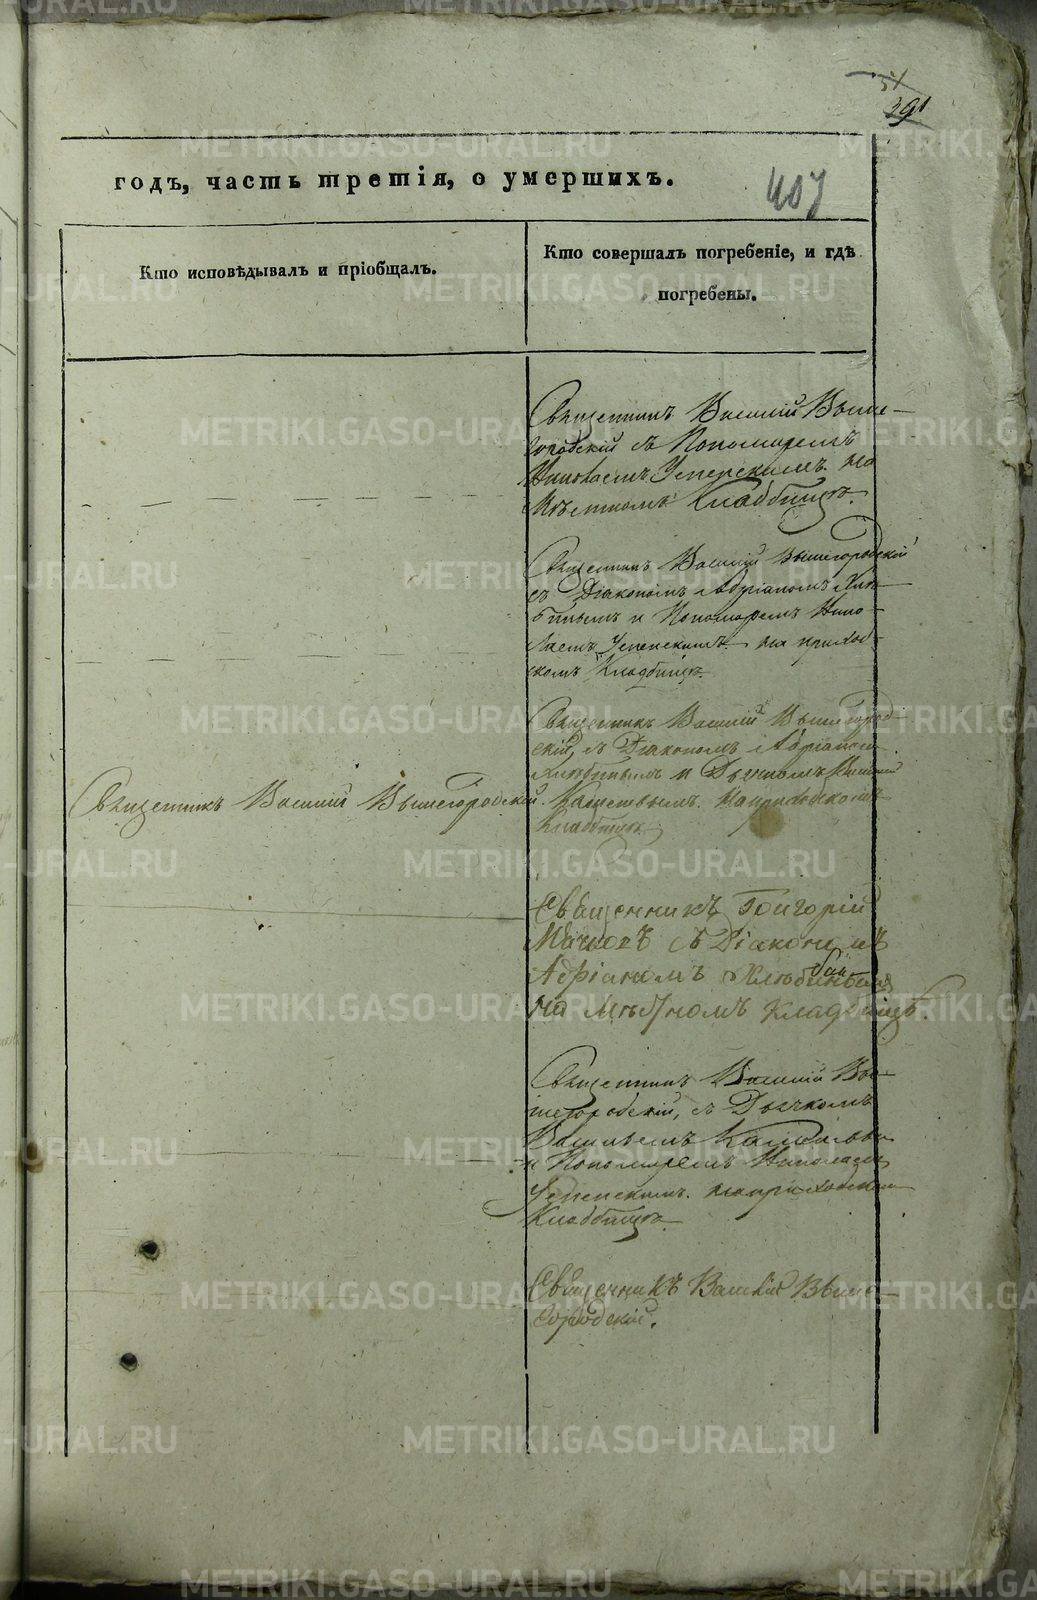 391
407
годъ, часть третія, о умершихъ.
Кто исповѣдывалъ и пріобщалъ.
Кто совершалъ погребеніе, и гдѣ
погребены.
Священникъ Василій Выше-
городскій съ Пономаремъ
Николаемъ Успенскимъ. на
мѣстномъ Кладбищѣ.
Священникъ Василій Вышегородскій
съ Діакономъ Адріаномъ Хлѣ-
бинымъ и Пономаремъ Нико-
лаемъ Успенскимъ. на приход-
скомъ Кладбищѣ.
Священникъ Василій Вышегород-
скій, съ Діакономъ Адріаномъ
Хлѣбинымъ и Дьячкомъ
Священникъ Василій Вышегородскій.
на приходскомъ
Кладбищѣ
Священникъ Григорій
съ Діакономъ
Адріаномъ
на мѣстномъ кладбищѣ.
Священникъ Василій Вы-
шегородскій, съ Дьячкомъ
Васильемъ
и Пономаремъ Николаемъ
Успенскимъ. на приходскомъ
Кладбищѣ
Священникъ Василій Выше-
городскій.
METRIKI.GASO-URAL.RU